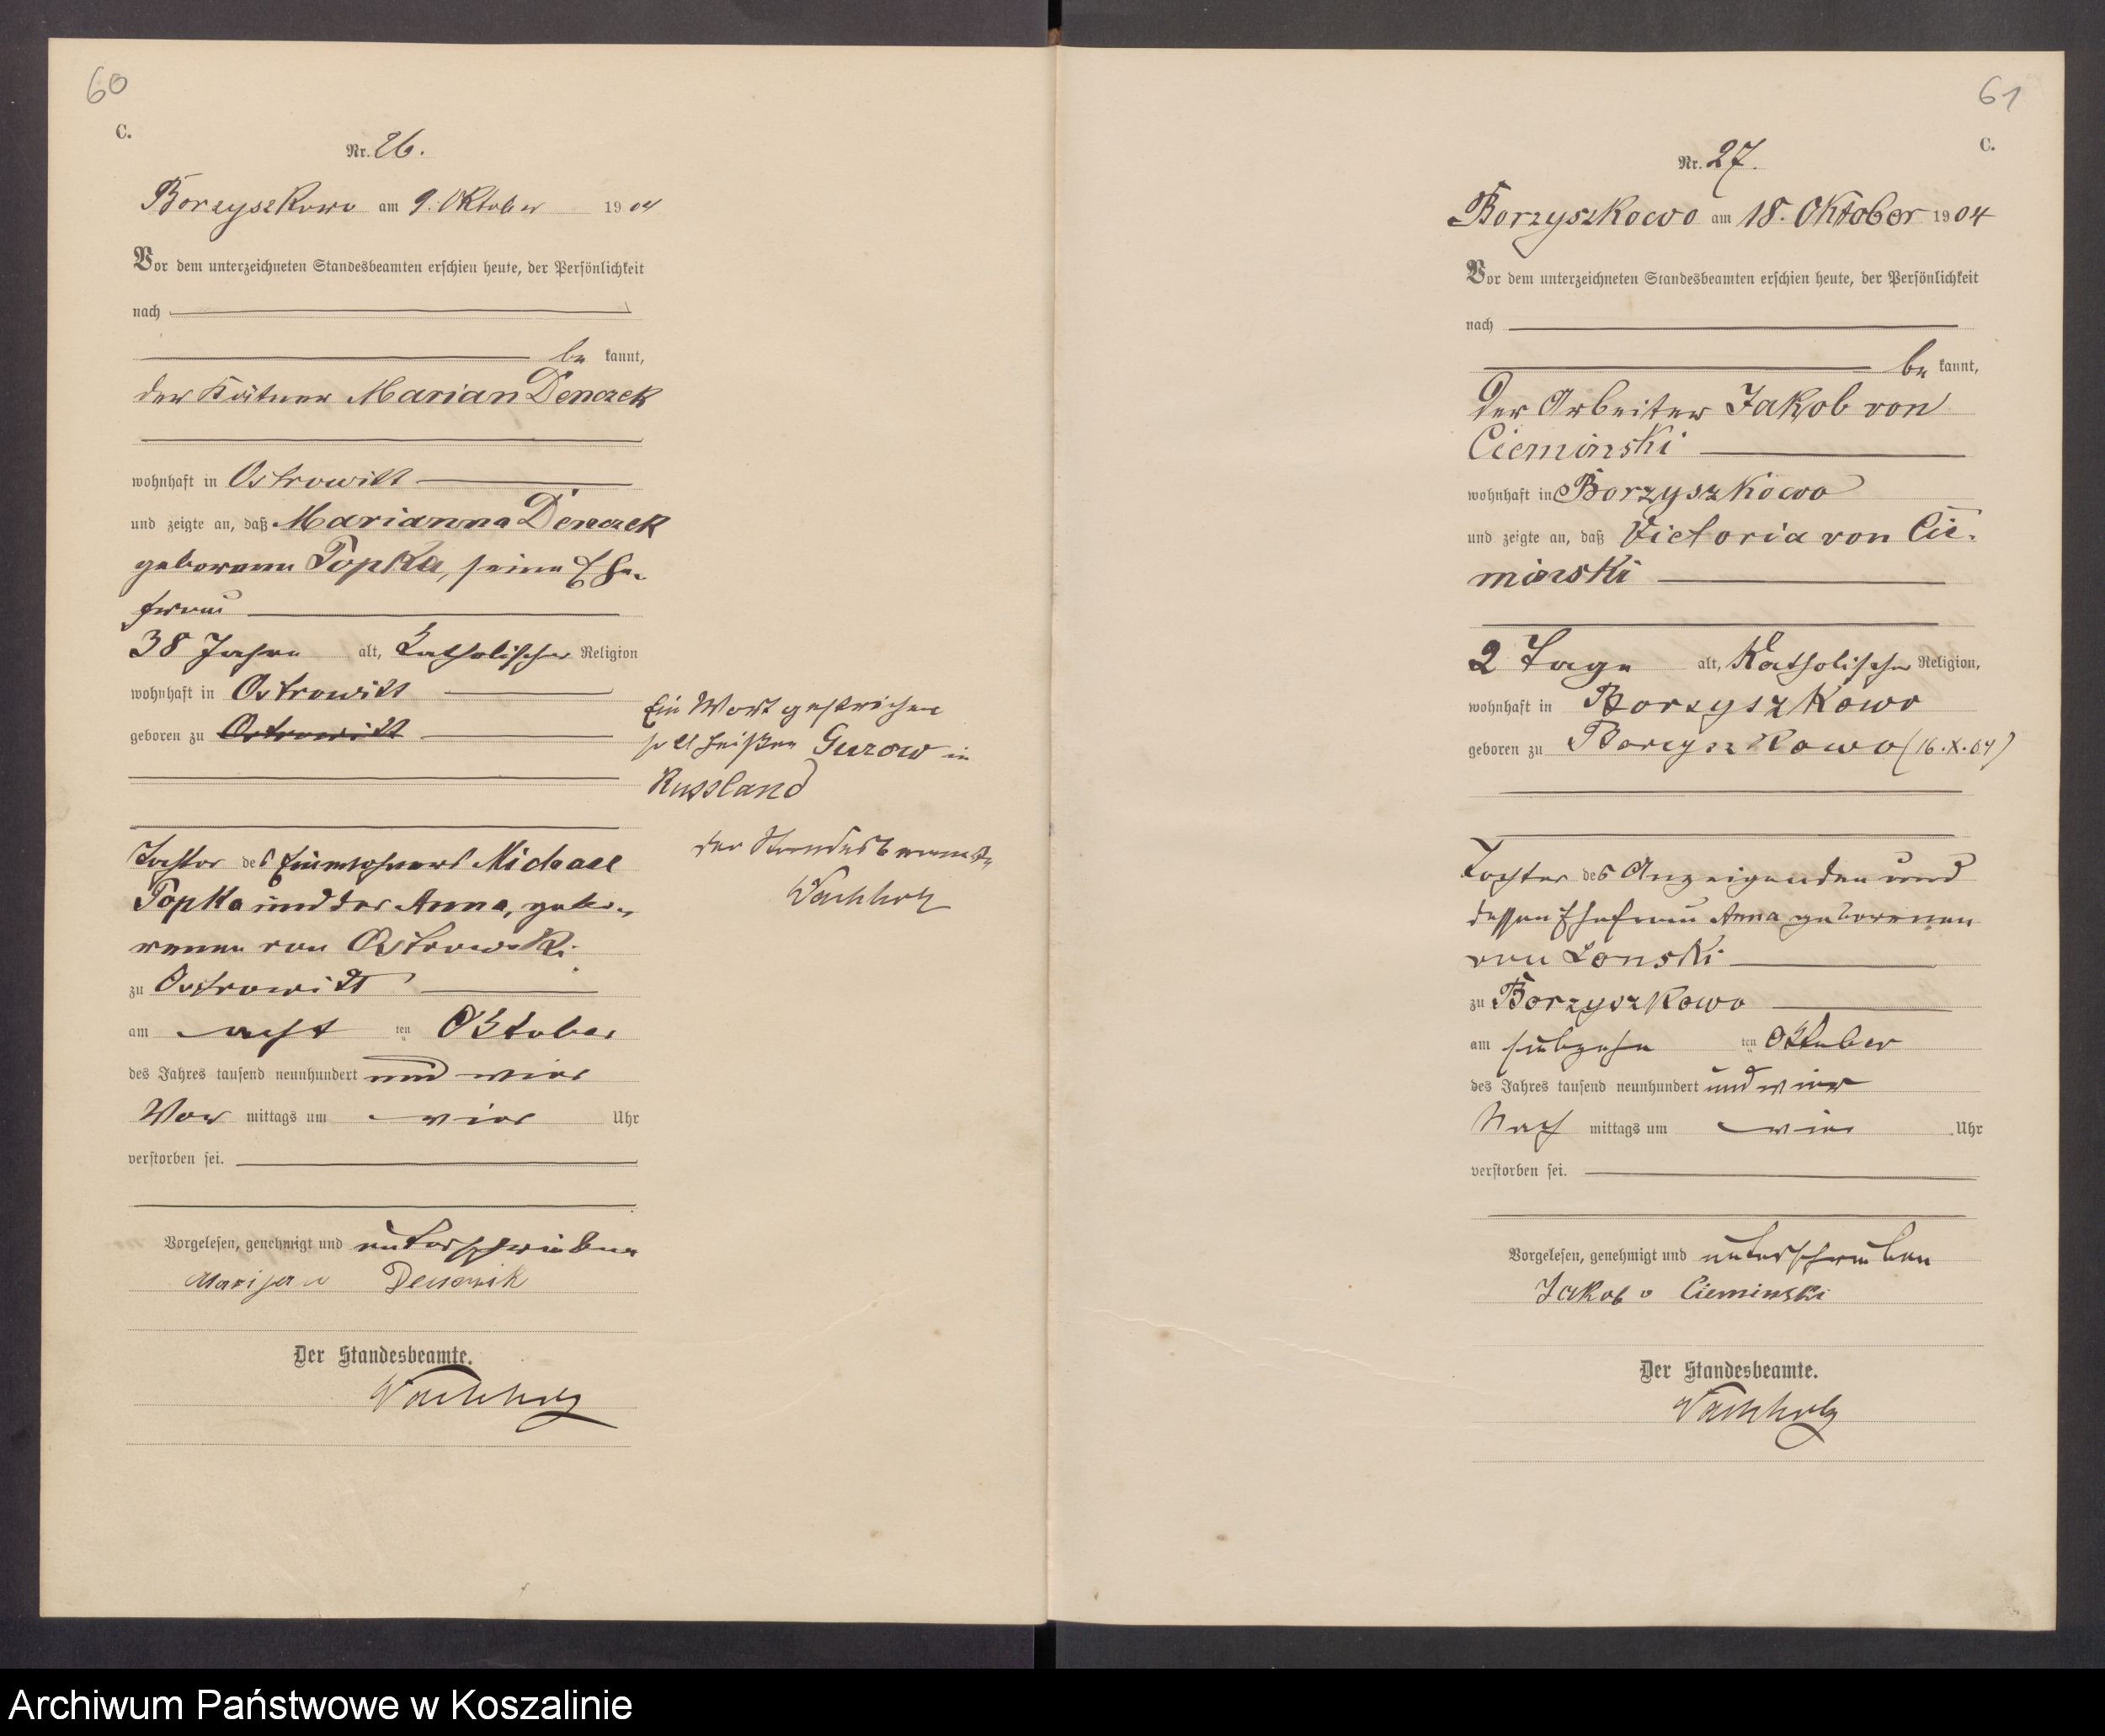 60
C.
Nr. 26.
Borzyszkowo am 9. Oktober 1904
Vor dem unterzeichneten Standesbeamten erschien heute, der Persönlichkeit
nach
be kannt,
der Kätner Marian Denczek
wohnhaft in Ostrowitt
und zeigte an, daß Marianna Denczek
geborene Popka, seine Ehe-
frau
38 Jahre alt, katholischer Religion
wohnhaft in Ostrowitt
geboren zu Ostrowitt
Tochter des Einwohners Michael
Popka und der Anna, gebo-
renen von Ostrowski
zu Ostrowitt
am acht ten Oktober
des Jahres tausend neunhundert und vier
Vor mittags um vier Uhr
verstorben sei.
Vorgelesen, genehmigt und unterschrieben
Marijan
Der Standesbeamte.
Wachholz
Ein Wort gestrichen
soll heißen Gurow in
Russland
der Standesbeamte
Wachholz
61
C.
Nr. 27.
Borzyszkowo am 18. Oktober 1904
Vor dem unterzeichneten Standesbeamten erschien heute, der Persönlichkeit
nach
be kannt,
Der Arbeiter Jakob von
Cieminski
wohnhaft in Borzyszkowo
und zeigte an, daß Victoria von Cie-
minski
2 Tage alt, Katholischer Religion,
wohnhaft in Borzyszkowo
geboren zu Borzyszkowo (16.X.04)
Tochter des Anzeigenden und
dessen Ehefrau Anna geborenen
von Lonski
zu Borzyszkowo
am siebzehn ten Oktober
des Jahres tausend neunhundert und vier
Nach mittags um vier Uhr
verstorben sei.
Vorgelesen, genehmigt und unterschrieben
Jakob v Cieminski
Der Standesbeamte.
Wachholz
Archiwum Państwowe w Koszalinie